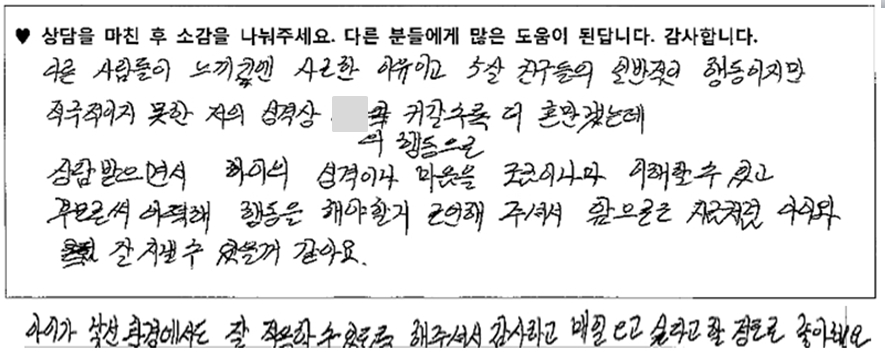 ♥ 상담을 마친 후 소감을 나눠주세요. 다른 분들에게 많은 도움이 된답니다. 감사합니다.
다른 사람들이 느끼기엔 사소한 이유이고 5살 친구들의 일반적인 행동이지만
적극적이지 못한 저의 성격상 커갈수록 더 혼란했는데
의 행동으로
상담 받으면서 아이의 성격이나 마음을 조금이나마 이해할 수 있고
부모로써 어떡해 행동을 해야할지 조언해 주셔서 앞으로는 지금처럼 아이와
잘 지낼 수 있을거 같아요.
아이가 낯선 환경에서도 잘 적응할 수 있도록 해주셔서 감사하고 매일 오고 싶다고 할 정도로 좋아해요